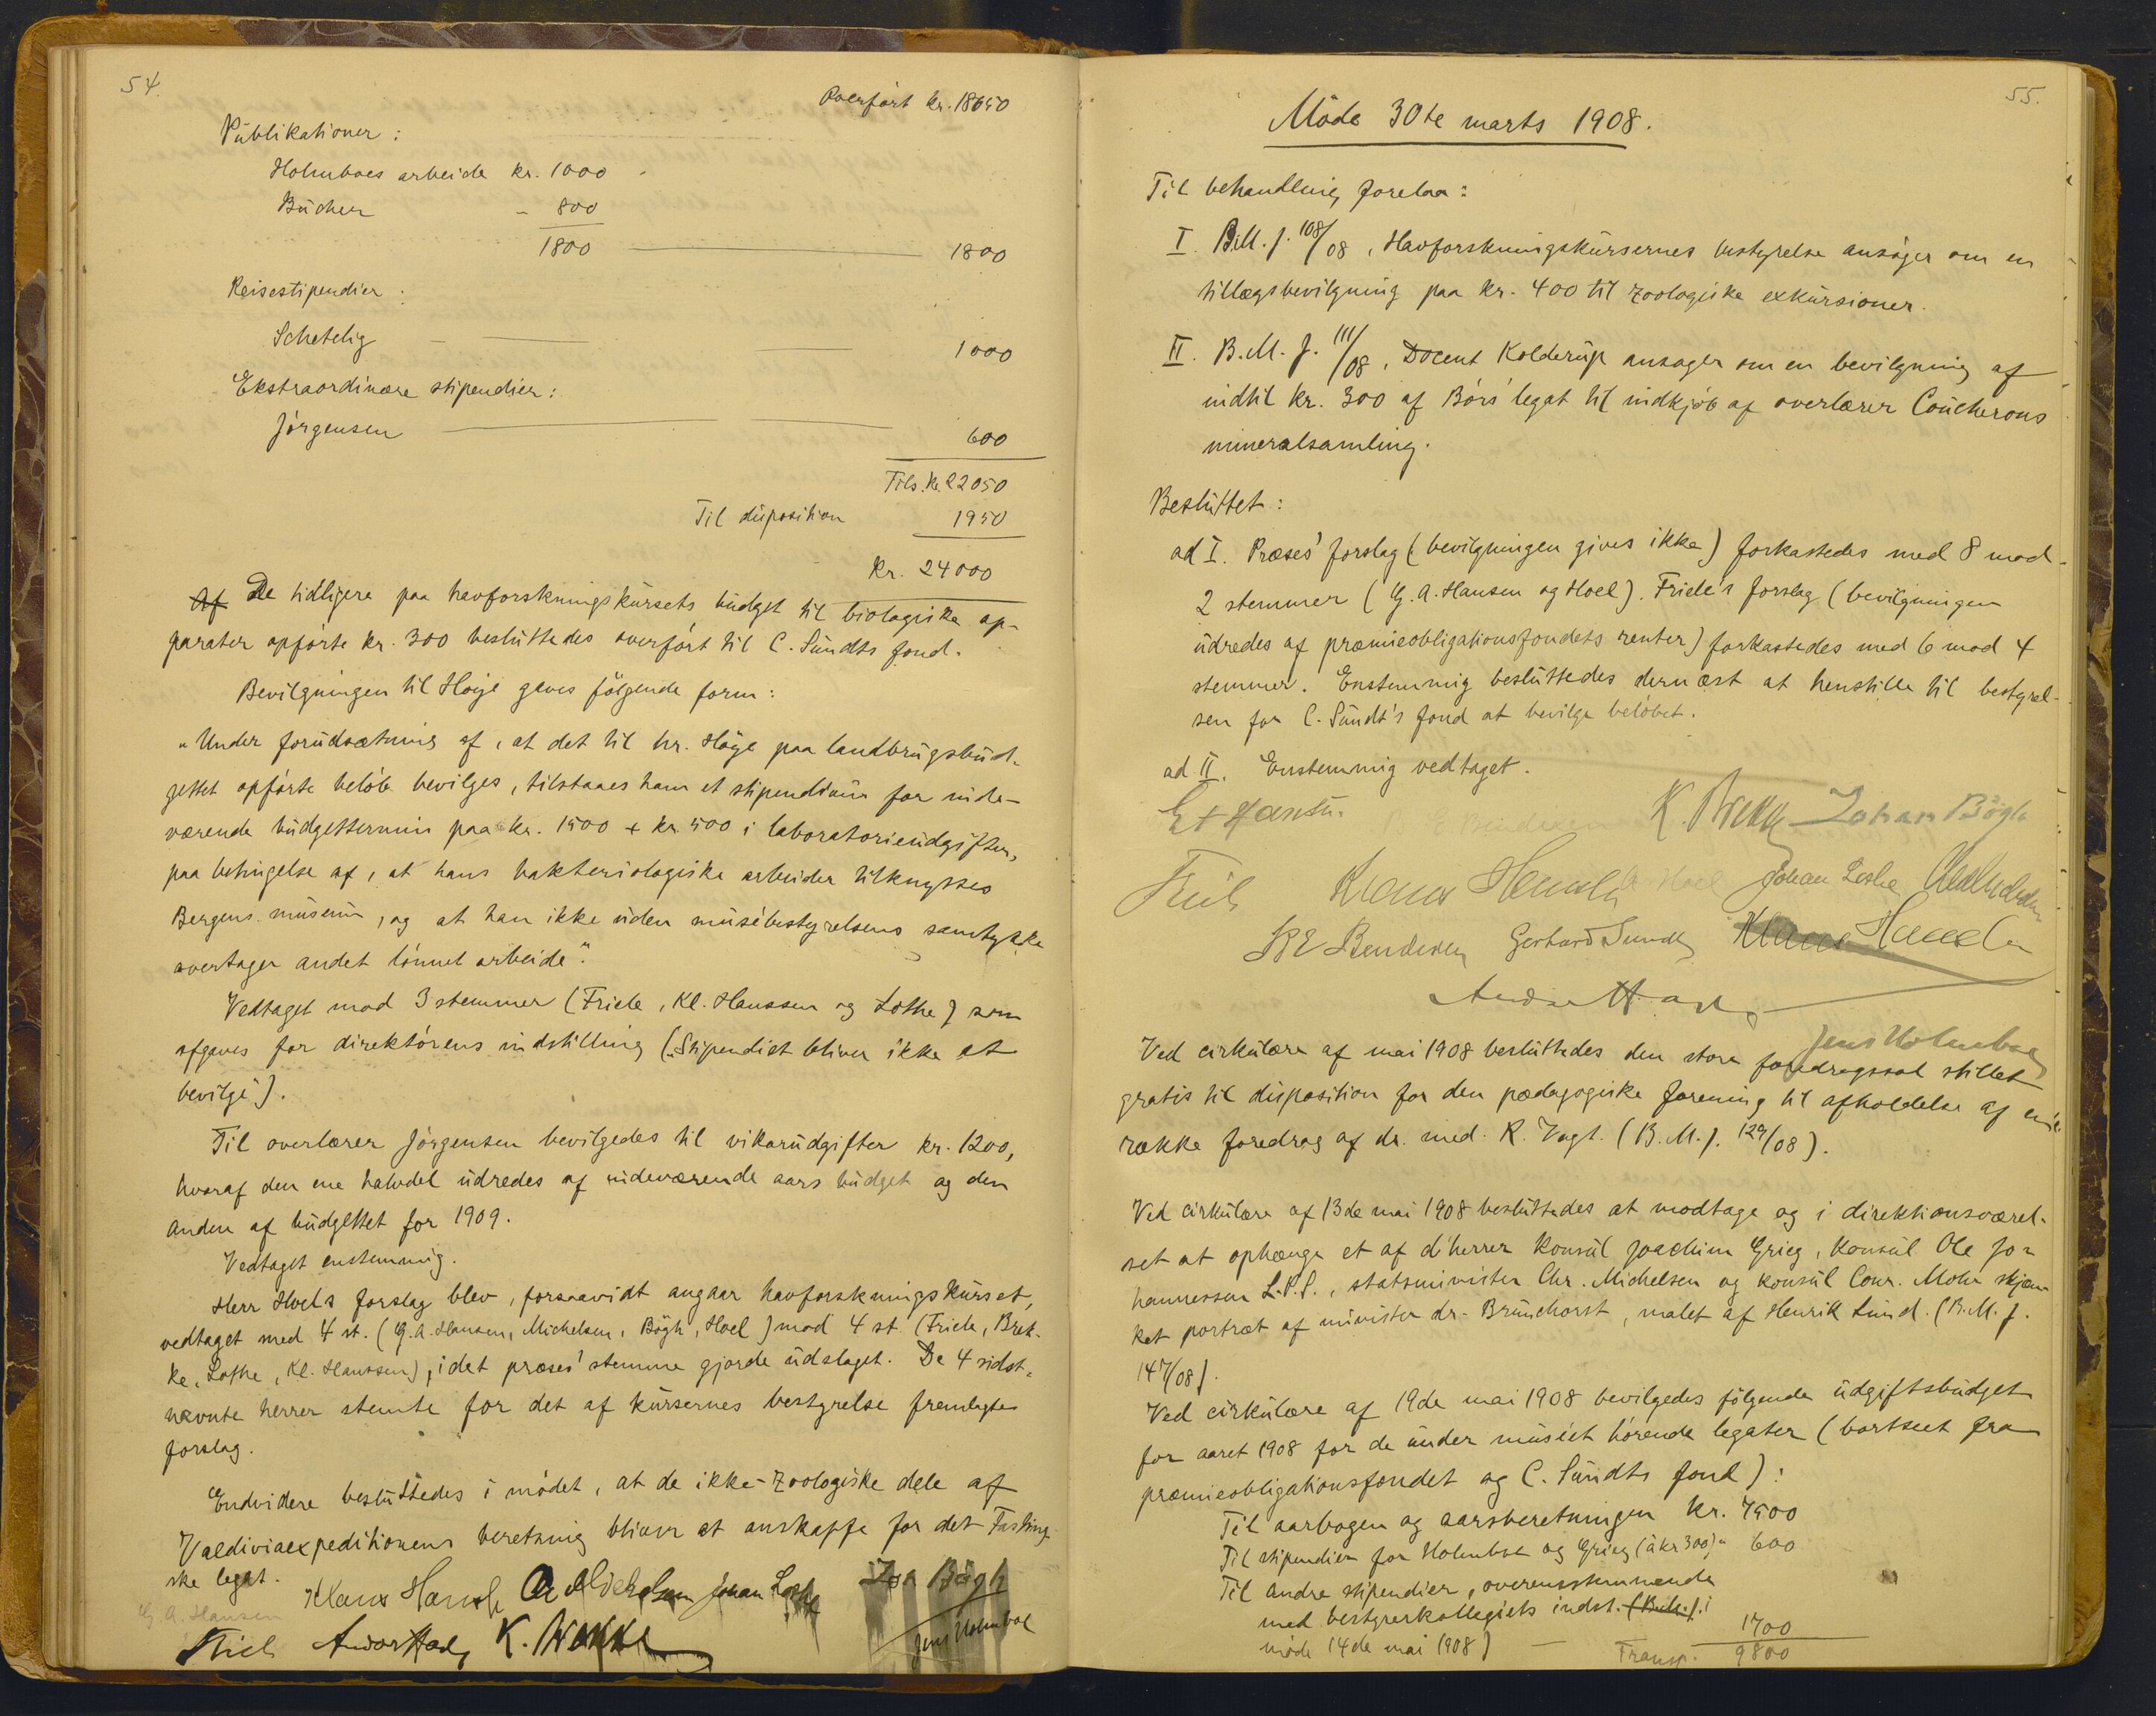 54.
Overført kr. 18650
Publikationer:
Holmboes arbeide kr. 1000
Bücher - 800
1800 1800
Reisestipendier:
Schetelig 1000
Ekstraordinære stipendier:
Jörgensen 600
Tils. kr. 22050
Til disposition 1950
Kr. 24000
Af De tidligere paa havforskningskursets budget til biologiske ap-
parater opførte kr. 300 besluttedes overført til C. Sundts fond.
Bevilgningen til Høye gaves følgende form:
"Under forudsætning af, at det til hr. Høye paa landbrugsbud-
gettet opførte beløb bevilges, tilstaaes ham et stipendium for inde-
værende budgettermin paa kr. 1500 + kr. 500 i laboratorieudgifter,
paa betingelse af, at hans bakteriologiske arbeider tilknyttes
Bergens museum, og at han ikke uden musébestyrelsens samtykke
overtager andet lønnet arbeide".
Vedtaget mod 3 stemmer (Friele, Kl. Hanssen og Lothe) som
afgaves for direktørens indstilling ("Stipendiet bliver ikke at
bevilge").
Til overlærer Jörgensen bevilgedes til vikarudgifter kr. 1200,
hvoraf den ene halvdel udredes af indeværende aars budget og den
anden af budgettet for 1909.
Vedtaget enstemmig.
Herr Hoels forslag blev, forsaavidt angaar havforskningskurset,
vedtaget med 4 st. (G. A. Hansen, Michelsen, Bøgh, Hoel) mod 4 st. (Friele, Brek-
ke, Lothe, Kl. Hanssen), idet præses' stemme gjorde udslaget. De 4 sidst-
nævnte herrer stemte for det af kursernes bestyrelse fremlagte
forslag.
Endvidere besluttedes i mødet, at de ikke-zoologiske dele af
Valdiviaexpeditionens beretning bliver at anskaffe for det Fasting-
ske legat.
Klaus Hanssen Chr Michelsen Johan Lothe Joh Bøgh
G. A. Hansen
Friele K. Brekke Jens Holmboe
55.
Møde 30te marts 1908.
Til behandling forelaa:
I. B.M. J. 108/08, Havforskningskursernes bestyrelse ansøger om en
tillægsbevilgning paa kr. 400 til zoologiske exkursioner.
II. B.M. J. 111/08, Docent Kolderup ansøger om en bevilgning af
indtil kr. 300 af Børs' legat til indkjøb af overlærer Coucherons
mineralsamling.
Besluttet:
ad I. Præses' forslag (bevilgningen gives ikke) forkastedes med 8 mod
2 stemmer (G. A. Hansen og Hoel). Friele's forslag (bevilgningen
udredes af præmieobligationsfondets renter) forkastedes med 6 mod 4
stemmer. Enstemmig besluttedes dernæst at henstille til bestyrel-
sen for C. Sundt's fond at bevilge beløbet.
ad II. Enstemmig vedtaget.
G A Hansen K. Brekke Johan Bøgh
Friele Klaus Hanssen Hoel Johan Lothe Chr Michelsen
B E Bendixen Gerhard Sundt Klaus Hanssen
Jens Holmboe
Ved cirkulære af mai 1908 besluttedes den store foredragssal stillet
gratis til disposition for den pædagogiske forening til afholdelse af en
række foredrag af dr. med. R. Vogt. (B. M. J. 129/08).
Ved cirkulære af 13de mai 1908 besluttedes at modtage og i direktionsværel-
set at ophænge et af d'herrer konsul Joachim Grieg, konsul Ole Jo-
hannessen L.P.S., statsminister Chr. Michelsen og konsul Conr. Mohr skjæn-
ket portræt af minister dr. Brunchorst, malet af Henrik Lund. (B. M. J.
147/08).
Ved cirkulære af 19de mai 1908 bevilgedes følgende udgiftsbudget
for aaret 1908 for de under muséet hørende legater (bortseet fra
præmieobligationsfondet og C. Sundts fond):
Til aarbogen og aarsberetningen kr. 7500
Til stipendier for Holmboe og Grieg (à kr 300) " 600
Til andre stipendier, overensstemmende
med bestyrerkollegiets indst. (B.M. J. i
møde 14de mai 1908) 1700
Transp. 9800